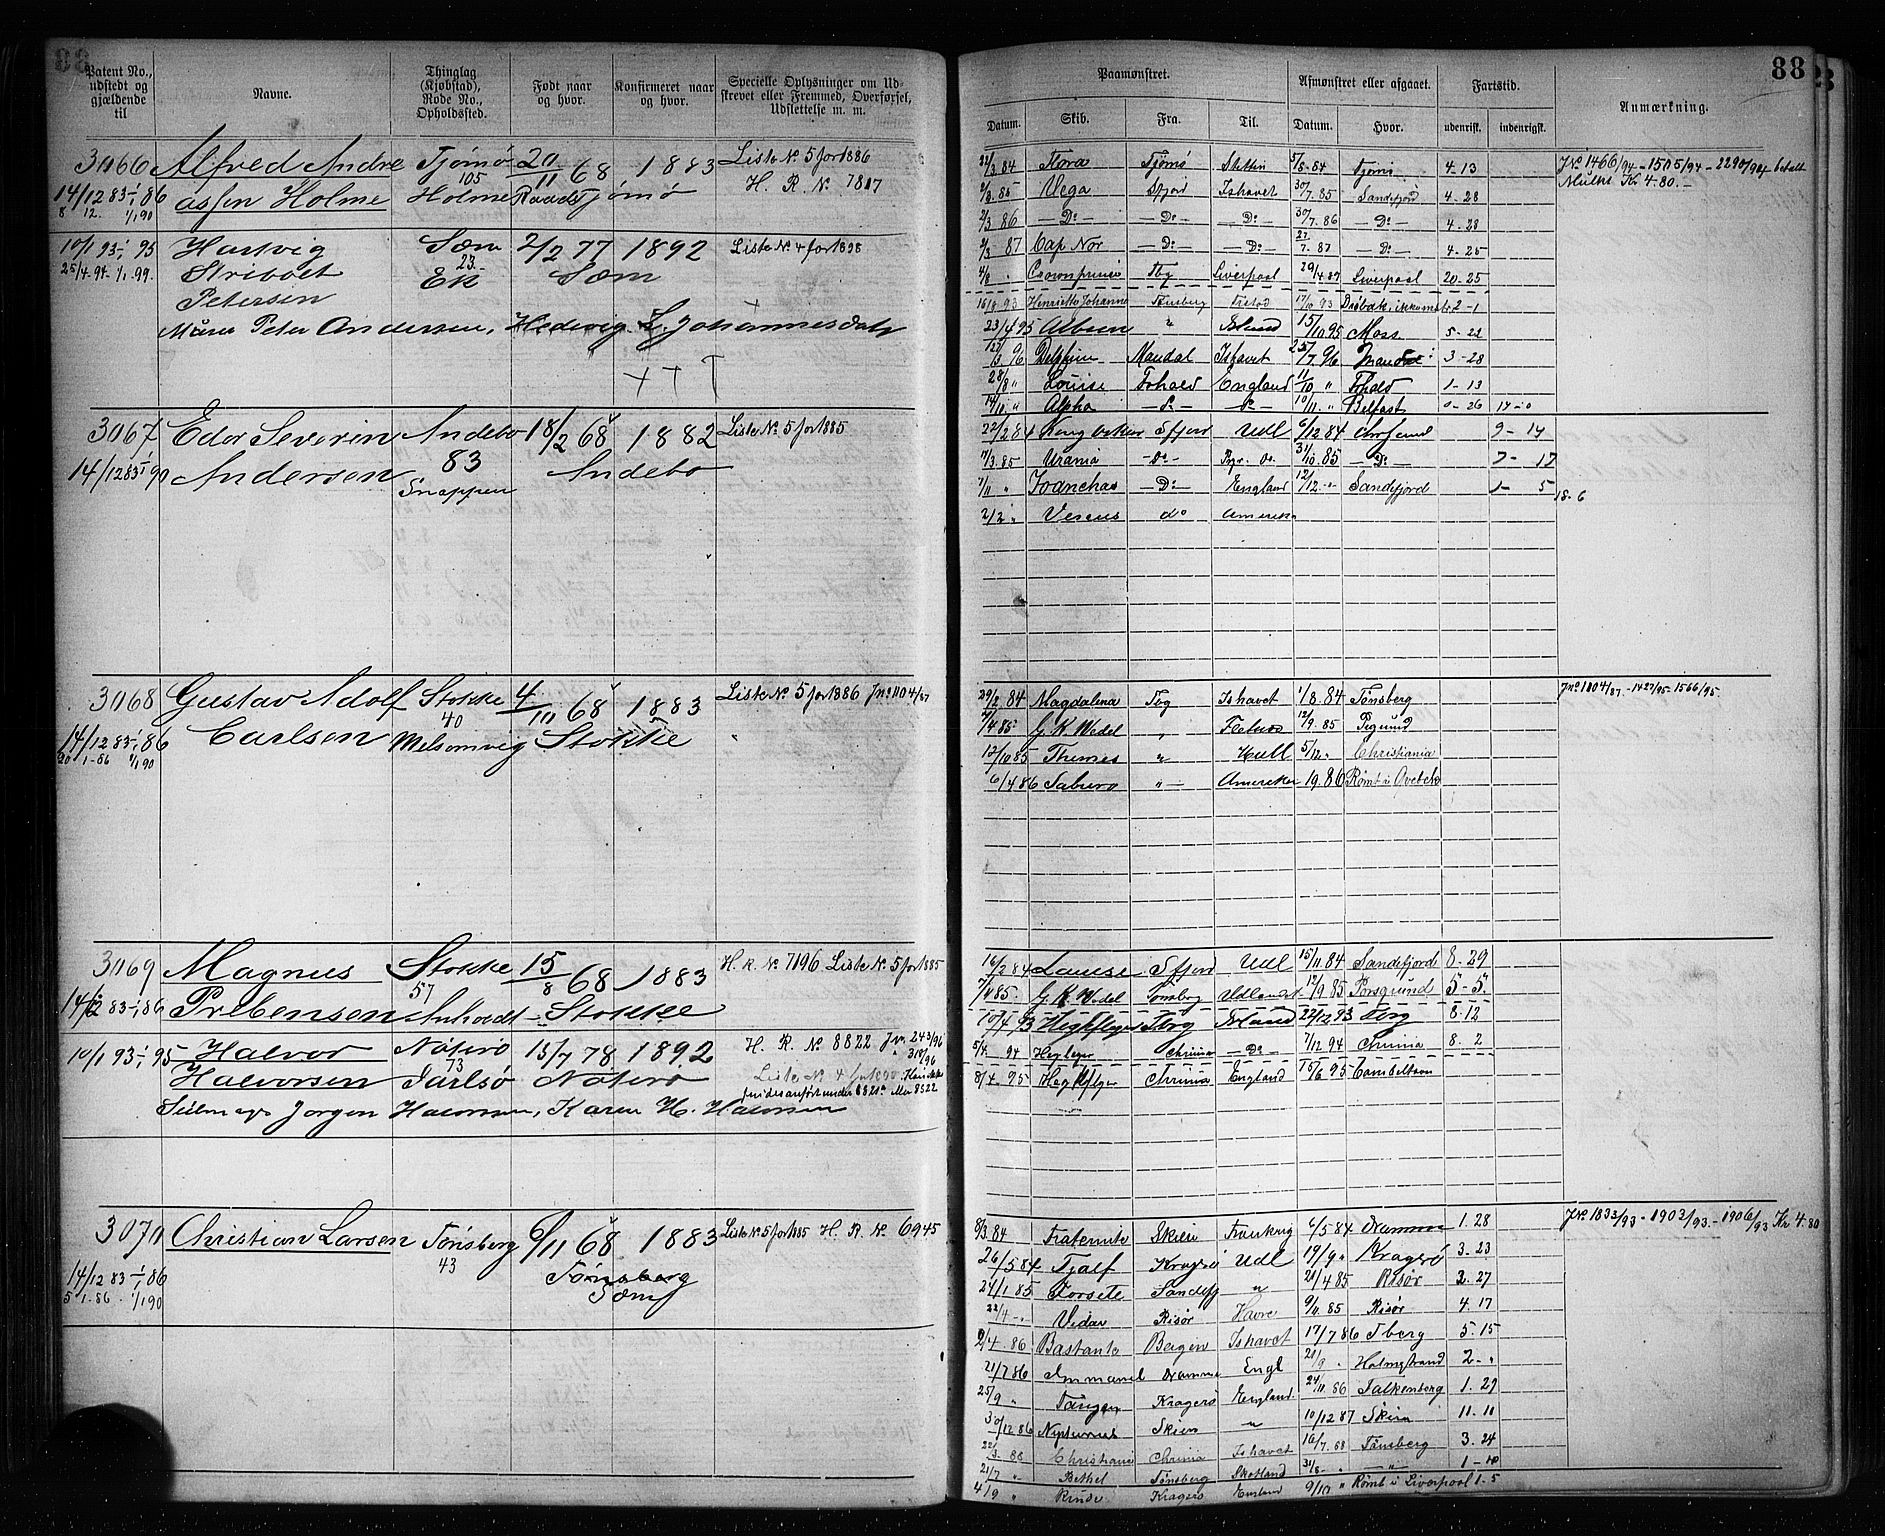 88
Patent No., udstedt og gjældende til
Navne.
Thinglag (Kjøbstad), Rode No., Opholdssted.
Født naar og hvor.
Konfirmeret naar og hvor.
Specielle Oplysninger om Udskrevet eller Fremmed, Overførsel, Udslettelse m. m.
3066 Alfred Andre Tjömö 20/11 68 1883 Liste No 5 for 1886
14/12 83 - 1/1 86 assen Holme 105 Holme Tjömö H. R. No 7817
8/12. 1/1 90
10/1 93 - 1/1 95 Hartvig Sæm 2/2 77 1892 Liste No 4 for 1898
25/4.94. 1/1.99. Stribolt 23. Ek Sæm
Petersen
Peter Andersen, Hedevig L. Johannesdatr
3067 Edor Severin Andebo 18/2 68 1882 Liste No 5 for 1885
14/12 83 1/1 90 Andersen 83 Andebo
Snappen
3068 Gustav Adolf Stokke 4/10 68 1883 Liste No 5 for 1886 Jno 1104/87
14/12 83 - 1/1 86 Carlsen 40 Melsomvig Stokke
20/1-86 1/1 90
3069 Magnus Stokke 15/8 68 1883 H. R. No 7196 Liste No 5 for 1885
14/12 83 - 1/1 86 Prebensen 57 Stokke
10/1 93 - 1/1 95 Halvor Nöterö 15/7 78 1892 H. R. No 8822 Jno 243/96
Halvorsen 73 Jarlsö Nöterö 318/96
Jørgen Halvorsen, Karen H. Halvorsen
3070 Christian Larsen Tönsberg 6/11 68 1883 Liste No 5 for 1885 H. R. No 6945
14/12 83 - 1/1 86 43 Tönsberg
5/1-86. 1/1 90 Sæm
88
Paamønstret.
Afmønstret eller afgaaet.
Fartstid.
Anmærkning.
Datum. Skib. Fra. Til. Datum. Hvor. udenrigsk. indenrigsk.
22/3 84 Flora Tjømø Stettin 5/8-84 Tjømø 4-13 JNo 1466/94-1505/94-2290/94 betalt
Vega Sfjord Ishavet 30/7.85 Sandefjord 4-28 Mulkt Kr 4.80.-
2/3 86 -Do- -Do- -Do- 30/7.86 -Do- 4-28
2/3 87 Cap Nor -Do- -Do- 27/7.87 -Do- 4-25
4/8 " Cronprinds Tbg Liverpool 29/4 89 Liverpool 20-25
16/8 93 Henriette Johanne Tønsberg 17/10 93 2-1
23/4 95 Albion " Island 15/10 95 Moss 5-22
12/3 96 Delphin Mandal Ishavet 25/7 96 Mandal 3-28
28/8 " Louise Frhald England 11/10 " Frhald 1-13
14/10 " Alpha -Do- -Do- 10/11 " Belfast 0-26 14-0
22/2 84 Kong Oskar Sfjord Udl 6/12 84 9-14
7/3.85 Urania -Do- Do. 31/10.85 -Do- 7-17
7/11 " Ivanchas -Do- England 12/12.-" Sandefjord 1-5 18-6
2/2 " Venus do Amerika
29/2 84 Magdalena Tbg Ishavet 1/8.84 Tönsberg Jno 1804/87.-1427/95-1566/95.
7/4 85 G. K. Wedel " 12/9.85
17/10 85 Themis " Hull 5/12 " Christiania
6/4 86 -"- Ameriker 19.86 Rømt i
16/2 84 Louise Sfjord Udl 15/11.84 Sandefjord 8-29
7/4 85. G. K. Wedel Tönsberg Udlandet 12/9 85 Porsgrund 5-5.
10/4 93 Tbrg 22/12 93 Tbrg 8.12
5/4. 94 Chrinia -Do- 7/12 94 Chrinia 8. 2
8/4. 95 Chrinia England 15/6 95
8/3 84 Fraternite Skien Frankrig 6/5 84 Drammen 1.28 JNo 1833/93-1903/93.-1906/93 Kr 4.80
26/5 84 Tjalf Kragerö Udl 19/9 " Kragerö 3.23
24/1 85 Forsete Sandefj " 21/4 85 Risör 3.27
22/4 -" Vidar Risör Havre 9/11.85 Risør 4.17
9/4.86 Bergen Ishavet 17/7 86 Tberg 5.15
21/7 86 Immanuel Dramme Engl 21/9 " Holmestrand 2-"
25/9 " Tangen Kragerö England 24/11.86 Falkenberg 1.29
30/12 86 Neptunus Skien " 10/12 87 Skien 11.11
22/3. 88 Christiane Chrinia Ishavet 16/7.88 Tönsberg 3.24
21/7 " Bethel Tønsberg Skotland 31/8- " -"- 1-10
4/9 " Kragerø England 9/10 " Rømt i Liverpool 1-5